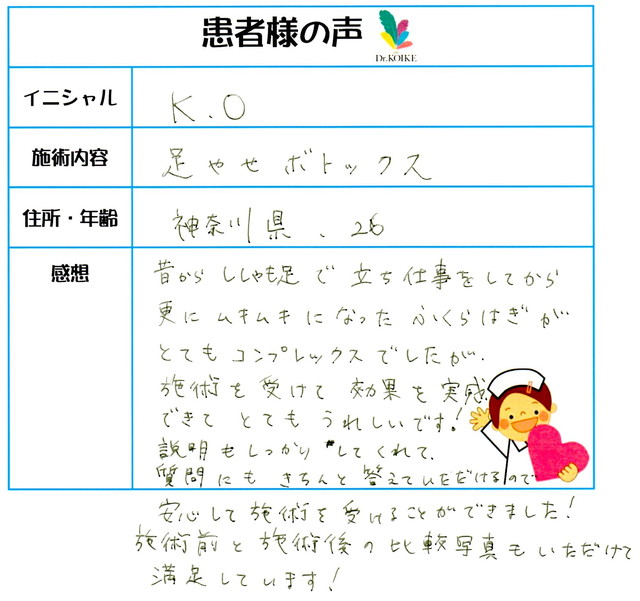 患者様の声
Dr.KOIKE
イニシャル K.O
施術内容 足やせボトックス
住所・年齢 神奈川県、26
感想
昔からししゃも足で立ち仕事をしてから
更にムキムキになったふくらはぎが
とてもコンプレックスでしたが、
施術を受けて効果を実感
できてとてもうれしいです!
説明もしっかりしてくれて、
質問にもきちんと答えていただけるので
安心して施術を受けることができました!
施術前と施術後の比較写真もいただけて
満足しています!